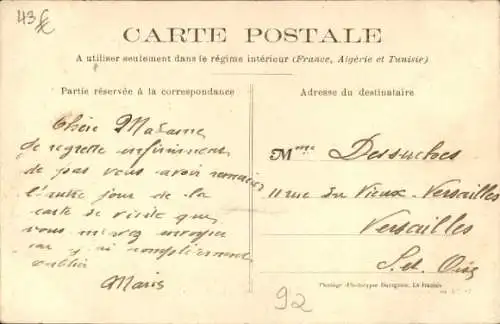 43
CARTE POSTALE
A utiliser seulement dans le régime intérieur (France, Algérie et Tunisie)
Partie réservée à la correspondance
Adresse du destinataire
Chère Madame
Je regrette infiniment
de pas vous avoir remercier
l'autre jour de la
carte de visite que
vous m'avez envoyer
car j'ai complètement
oublier
Maris
Mme Dessuches
11 rue du Vieux-Versailles
Versailles
S. et Oise
92